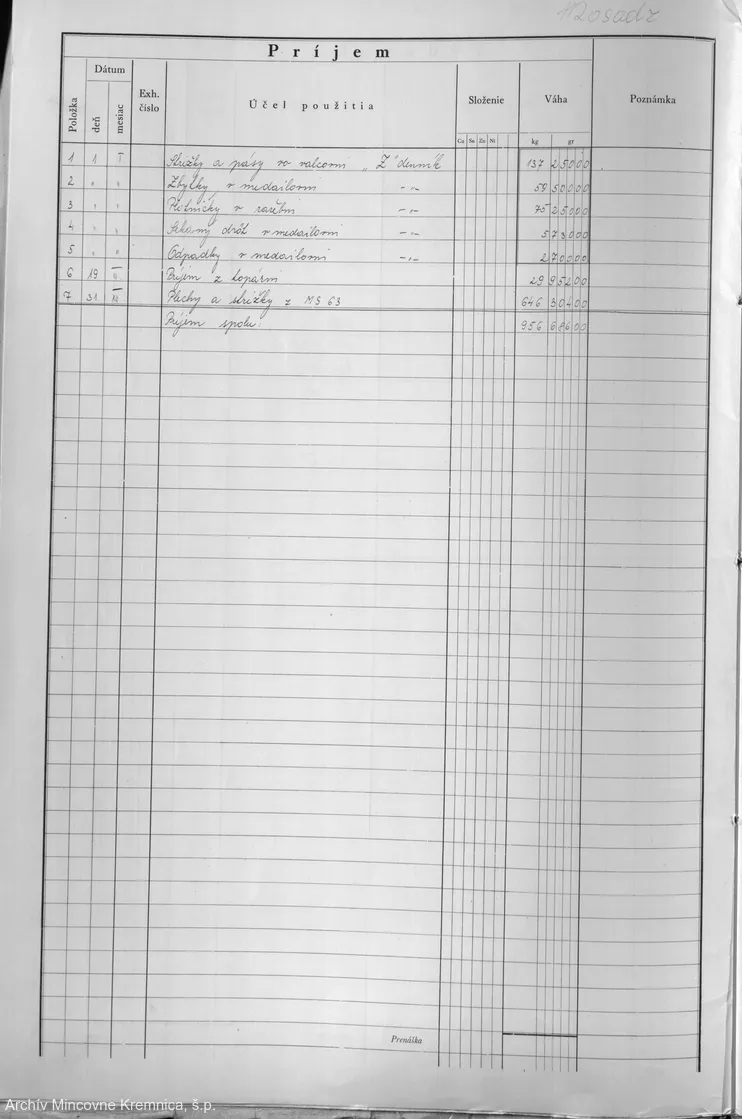 Mosadz
Príjem
Položka Dátum deň mesiac Exh. číslo Účel použitia Složenie Váha Poznámka
Cu Sn Zn Ni kg gr
1 1 I Strižky a pásy vo valcovni „Z" denník 137 250 00
2 " " Zbytky v medailovni -"- 59 500 00
3 " " Plôtničky v razebni -"- 75 250 00
4 " " Sekaný drôt v medailovni -"- 5 730 00
5 " " Odpadky v medailovni -"- 2 700 00
6 19 Príjem z kopární 29 952 00
7 31 XII Plechy a strižky z MS 63 646 304 00
Príjem spolu: 956 686 00
Prenáška
Archív Mincovne Kremnica, š.p.